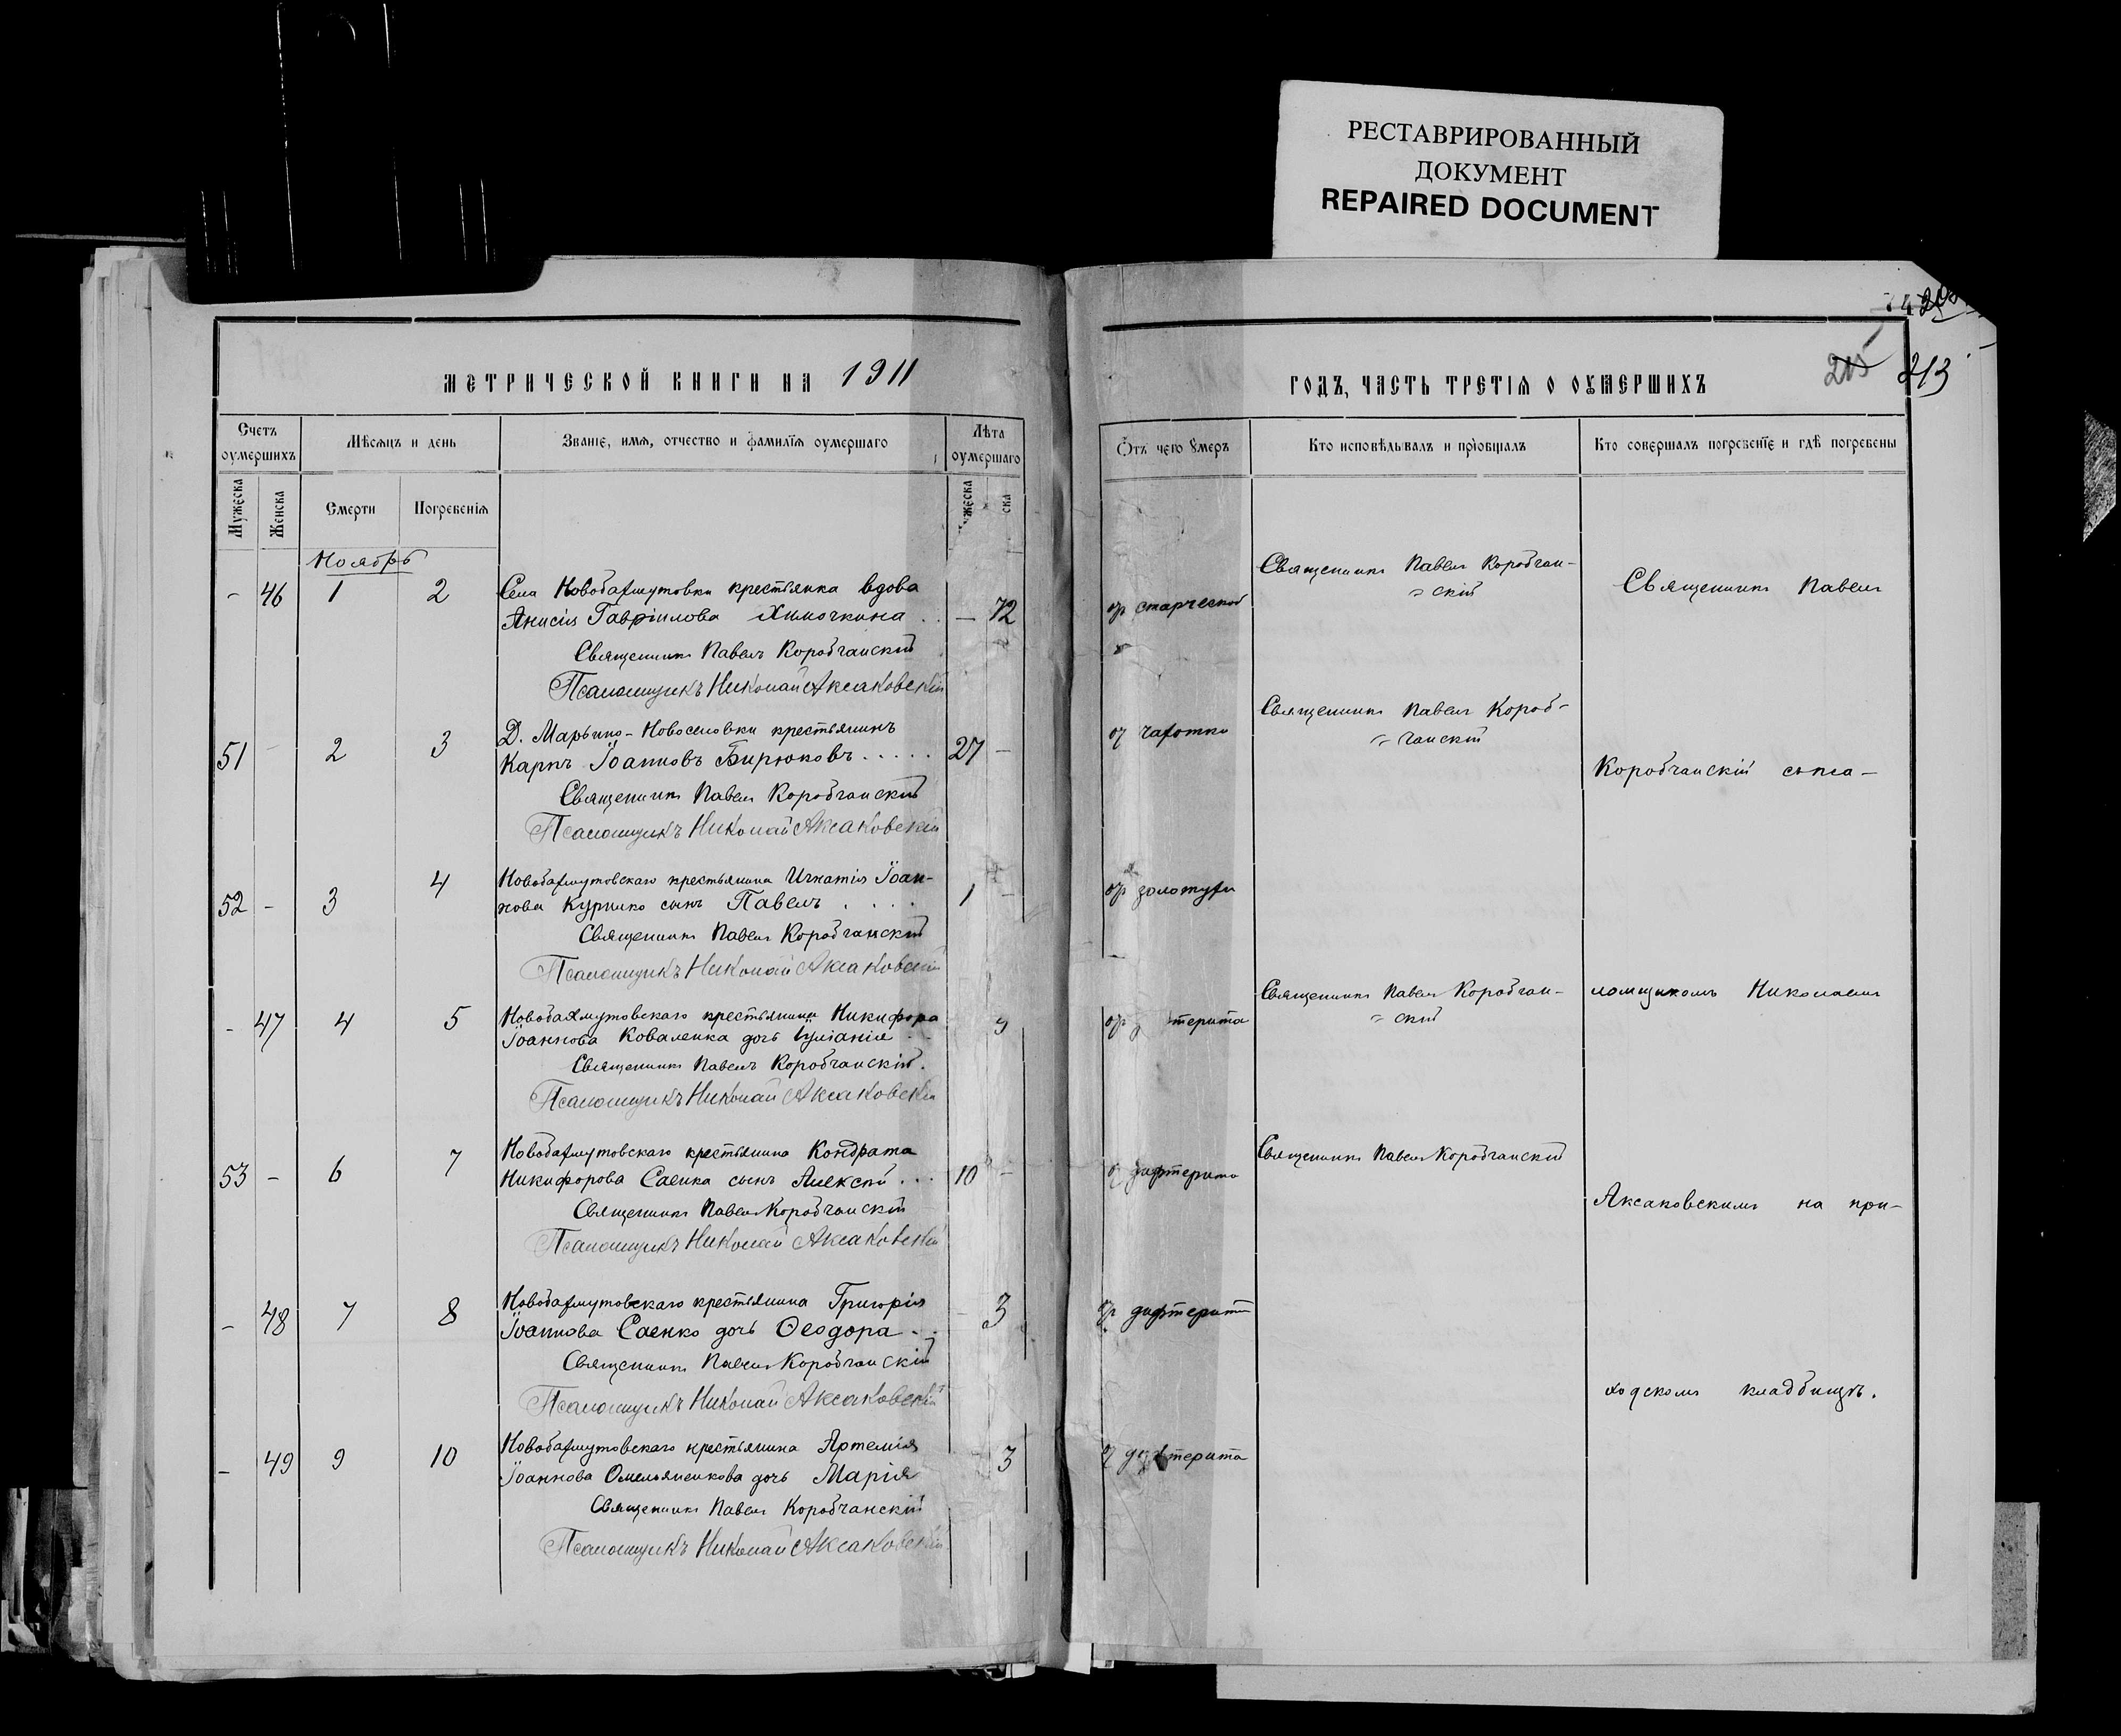 РЕСТАВРИРОВАННЫЙ
ДОКУМЕНТ
REPAIRED DOCUMENT
МЕТРИЧЕСКОЙ КНИГИ НА 1911
Счетъ оумершихъ
Мѣсяцъ и день
Званіе, имя, отчество и фамилія оумершаго
Лѣта оумершаго
Мужеска
Женска
Смерти
Погребенія
Ноябрь
- 46 1 2 Села Новобахмутовки крестьянка вдова
Анисія Гавріилова Химочкина . . — 72
Священникъ Павелъ Коробчанскій
Псаломщикъ Николай Аксаковскій
51 - 2 3 Д. Марьино-Новоселовки крестьянинъ
Карпъ Іоанновъ Бирюковъ . . . . . 27 —
Священникъ Павелъ Коробчанскій
Псаломщикъ Николай Аксаковскій
52 - 3 4 Новобахмутовскаго крестьянина Игнатія Іоан-
нова Курилко сынъ Павелъ . . . . 1 -
Священникъ Павелъ Коробчанскій
Псаломщикъ Николай Аксаковскій
- 47 4 5 Новобахмутовскаго крестьянина Никифора
Іоаннова Коваленка дочь Іуліанія
Священникъ Павелъ Коробчанскій.
Псаломщикъ Николай Аксаковскій
53 - 6 7 Новобахмутовскаго крестьянина Кондрата
Никифорова Саенка сынъ Алексѣй . . . 10 -
Священникъ Павелъ Коробчанскій
Псаломщикъ Николай Аксаковскій
- 48 7 8 Новобахмутовскаго крестьянина Григорія
Іоаннова Саенко дочь Ѳеодора . . 3
Священникъ Павелъ Коробчанскій
Псаломщикъ Николай Аксаковскій
- 49 9 10 Новобахмутовскаго крестьянина Артемія
Іоаннова Омельяненкова дочь Марія 3
Священникъ Павелъ Коробчанскій
Псаломщикъ Николай Аксаковскій
213
ГОДЪ, ЧАСТЬ ТРЕТІЯ О ОУМЕРШИХЪ
Отъ чего умеръ
Кто исповѣдывалъ и пріобщалъ
Кто совершалъ погребеніе и гдѣ погребены
Священникъ Павелъ Коробчан-
скій
Священникъ Павелъ
отъ старческой
Священникъ Павелъ Короб-
чанскій
отъ чахотки
Коробчанскій съ пса-
отъ золотухи
Священникъ Павелъ Коробчан-
скій
ломщикомъ Николаемъ
Священникъ Павелъ Коробчанскій
отъ дифтерита
Аксаковскимъ на при-
отъ дифтерита
ходскомъ кладбищѣ.
отъ дифтерита